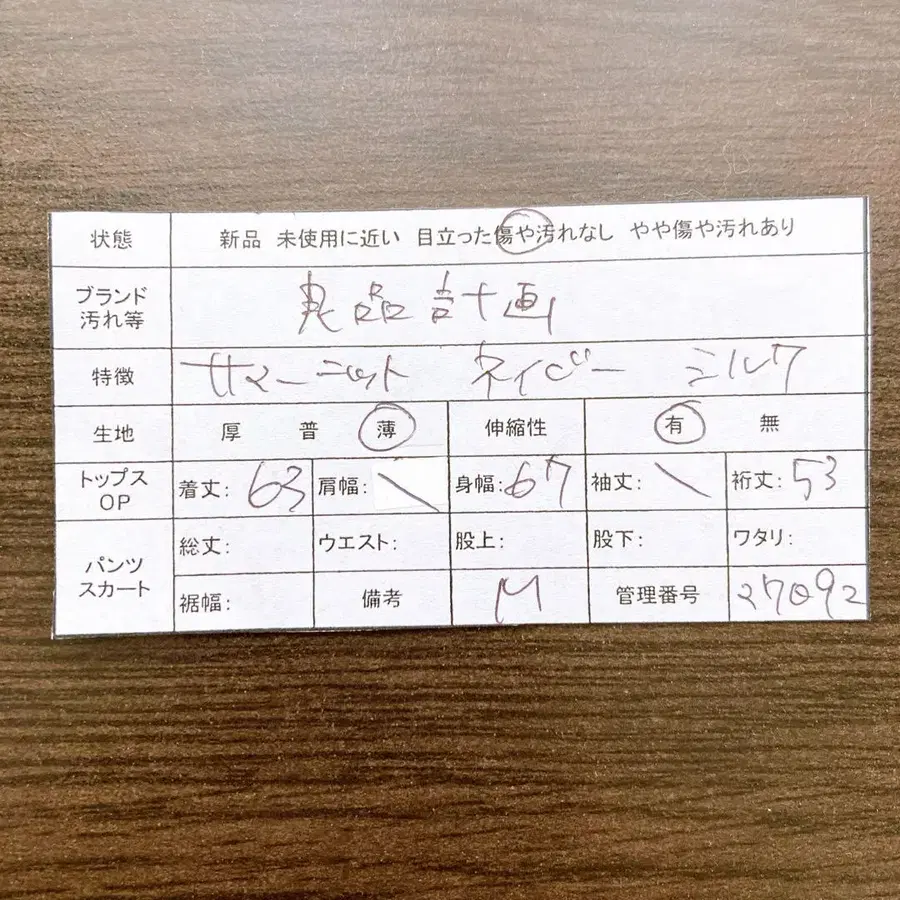 状態 新品 未使用に近い 目立った傷や汚れなし やや傷や汚れあり
ブランド
汚れ等 良品計画
特徴 サマーニット ネイビー シルク
生地 厚 普 薄 伸縮性 有 無
トップス
OP 着丈: 63 肩幅: \ 身幅: 67 袖丈: \ 裄丈: 53
パンツ
スカート 総丈: ウエスト: 股上: 股下: ワタリ:
裾幅: 備考 M 管理番号 27092